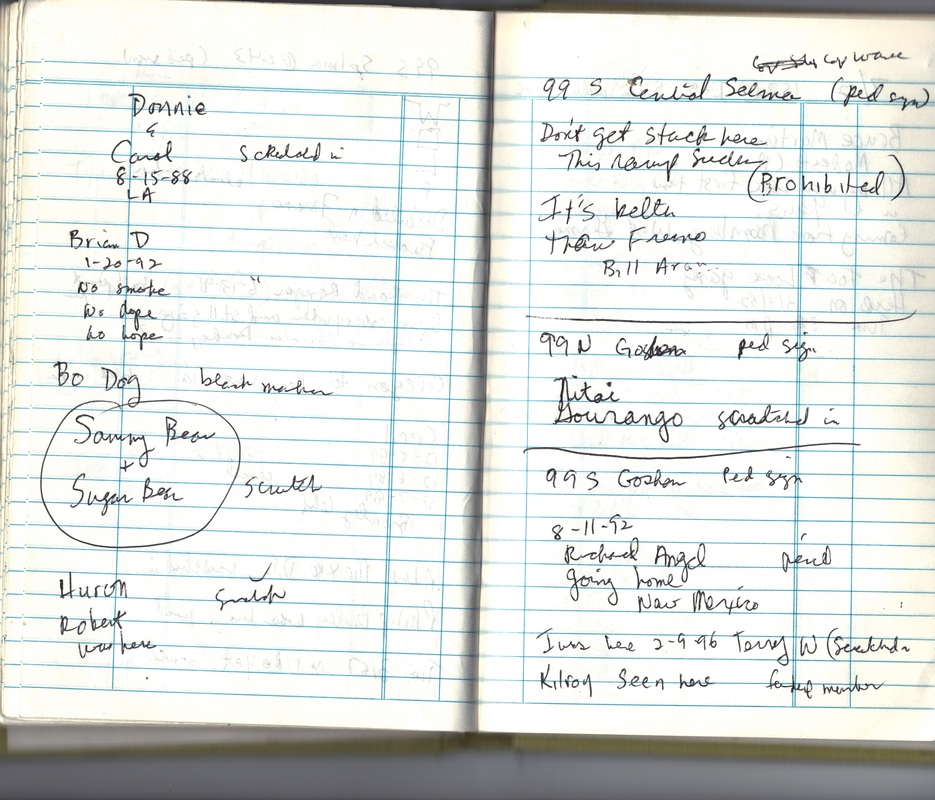 Donnie
&
Carol scratched in
8-15-88
LA
Brian D
1-20-92
No smoke "
No dope
No hope
Bo Dog black marker
Sammy Bear
+
Sugar Bear scratch
Huron scratch
Robert
was here
Cop Wave
99 S Central Selma (ped sign)
Don't get stuck here
This ramp sucks
(Prohibited)
It's better
than Fresno
Bill
99 N Goshen ped sign
Nitai
Gourango scratched in
99 S Goshen Ped sign
8-11-92
Richard Angel pencil
going home
New Mexico
I was here 2-9-96 Terry W (Scratched in
Kilroy Seen here marker